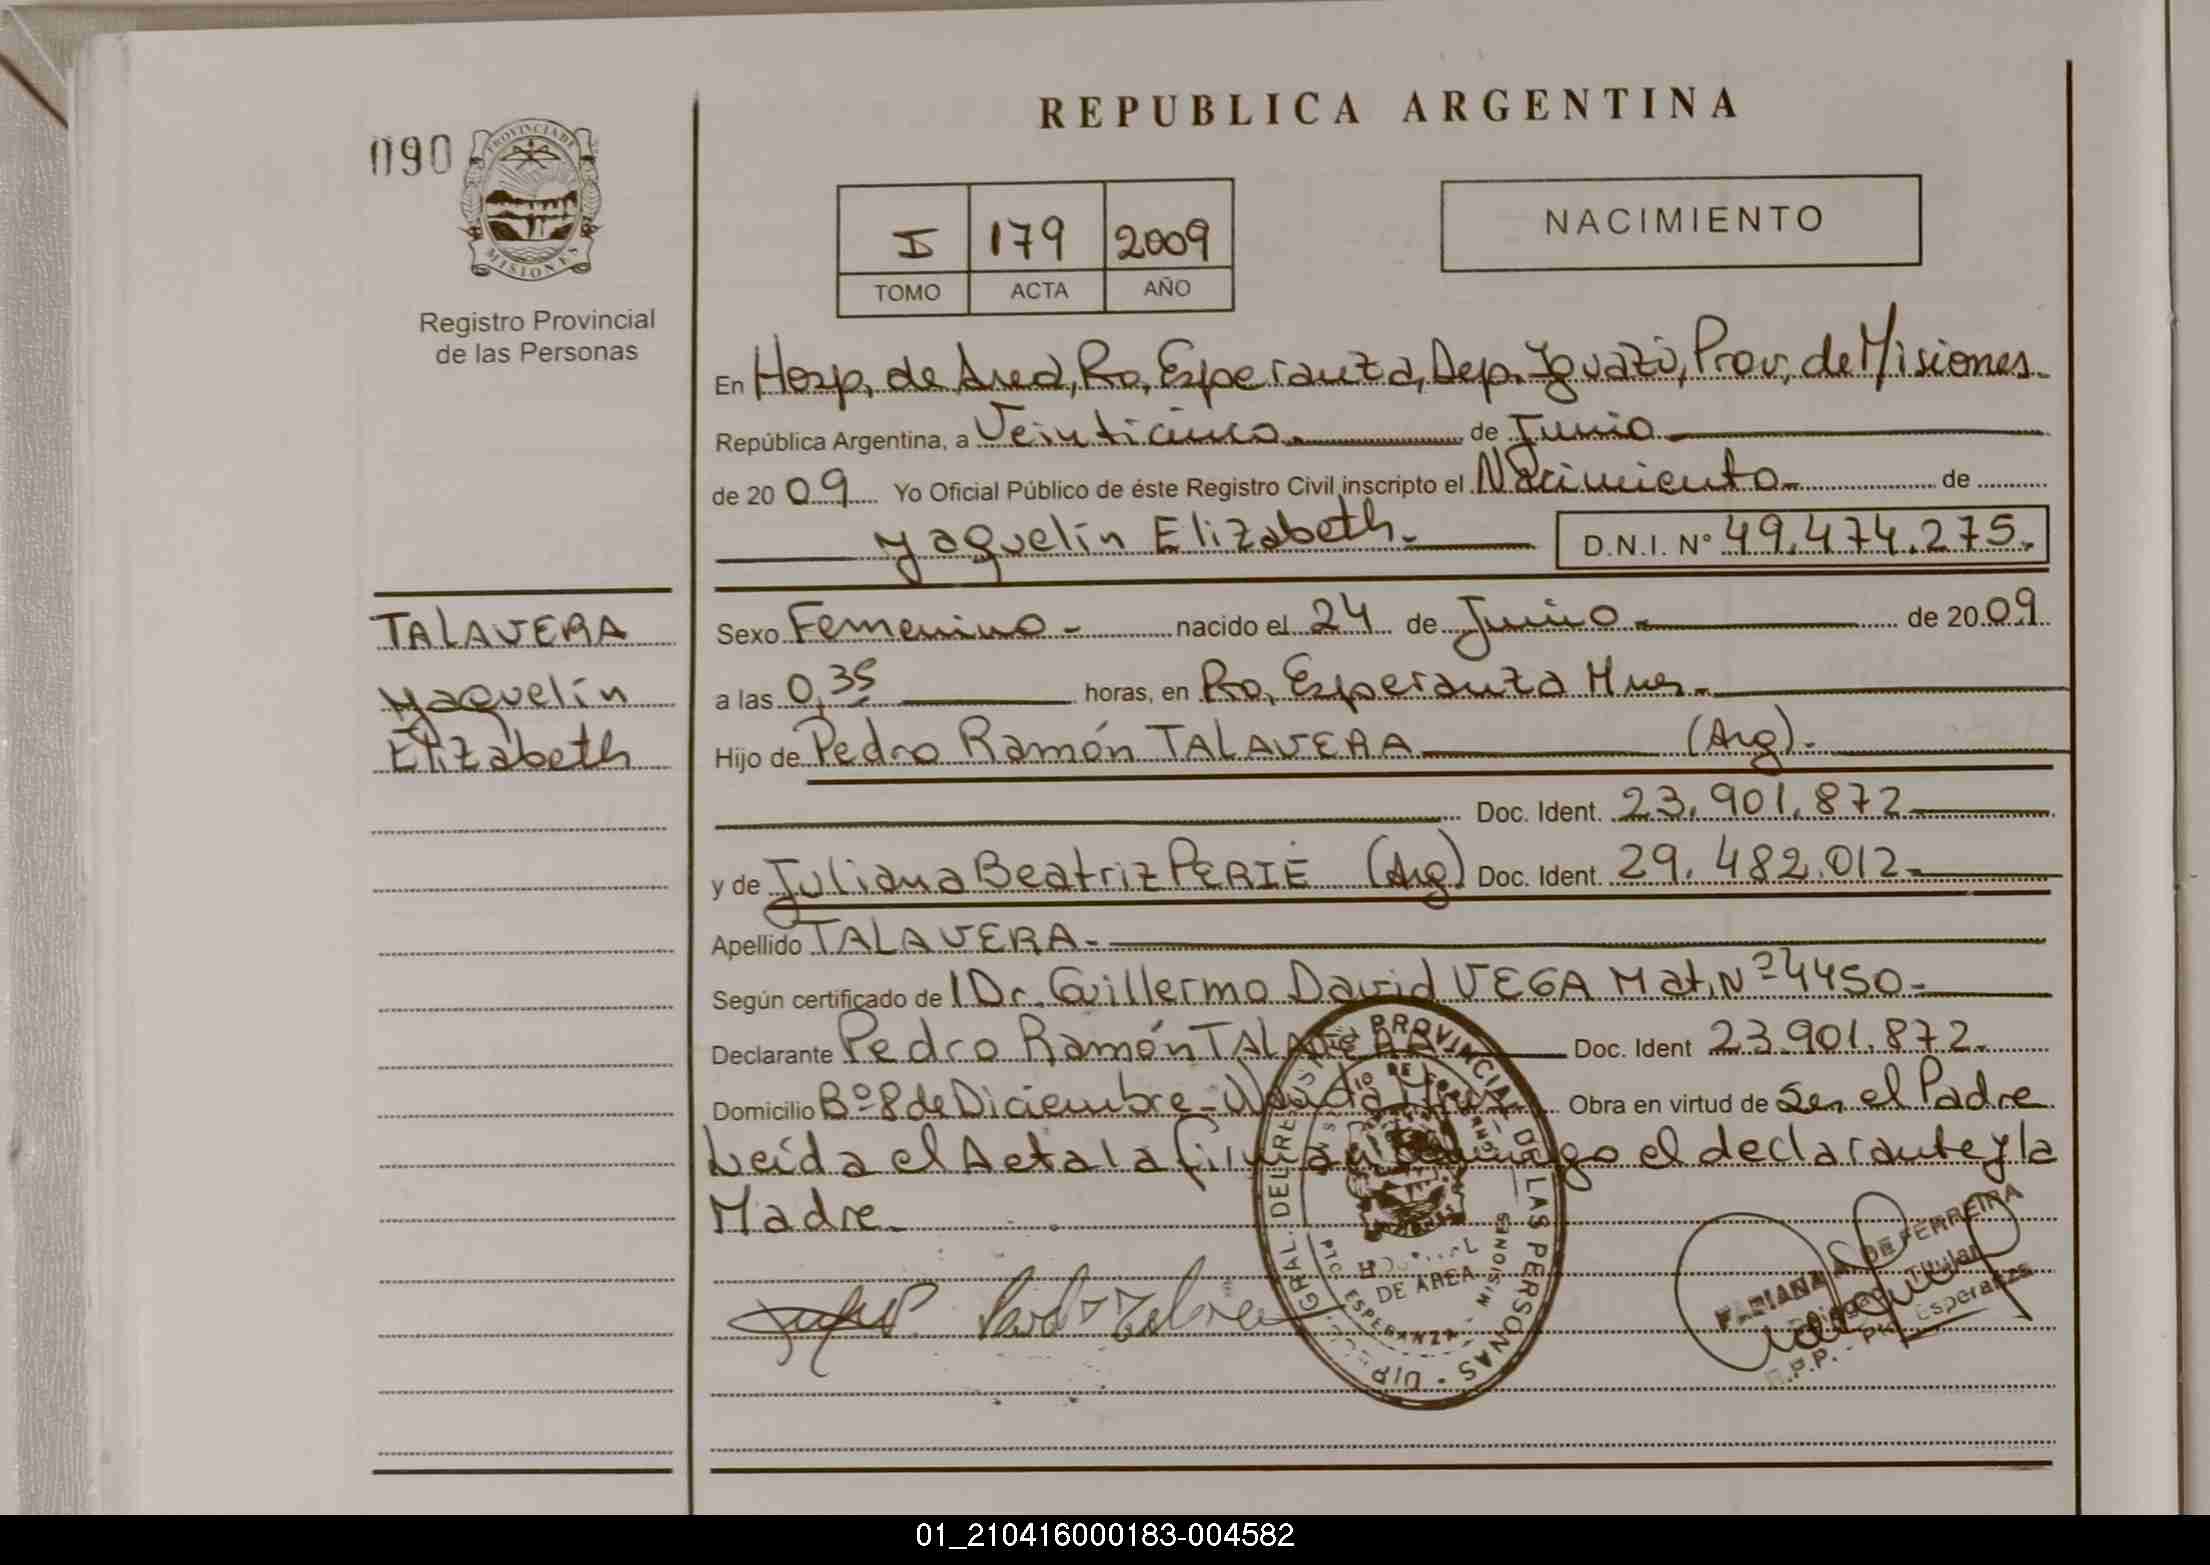 REPUBLICA ARGENTINA
090
PROVINCIA DE
MISIONES
Registro Provincial
de las Personas
I 179 2009
TOMO ACTA AÑO
NACIMIENTO
En Hosp. de Area, Pto. Esperanza, Dep. Iguazú, Prov. de Misiones.
República Argentina, a Veinticinco. de Junio
de 20 09 Yo Oficial Público de éste Registro Civil inscripto el Nacimiento de
Yaquelín Elizabeth. D.N.I. N° 49.474.275.
TALAVERA
Yaquelín
Elizabeth
Sexo Femenino - nacido el 24 de Junio de 20 09
a las 0,35 horas, en Pto. Esperanza Mnes.
Hijo de Pedro Ramón TALAVERA (Arg).
Doc. Ident. 23.901.872
y de Juliana Beatriz PERIÉ (Arg) Doc. Ident. 29.482.012
Apellido TALAVERA
Según certificado de l Dr. Guillermo David VEGA Mat. Nº 4450
Declarante Pedro Ramón TALAVERA Doc. Ident 23.901.872
Domicilio Bº 8 de Diciembre - Obra en virtud de Ser el Padre
Leída el Acta la el declarante y la
Madre
DIRECC. GRAL. DEL REG. PROVINCIAL DE LAS PERSONAS
DE AREA
PTO. ESPERANZA - MISIONES
DE FERREIRA
Titular
Esperanza
01_210416000183-004582